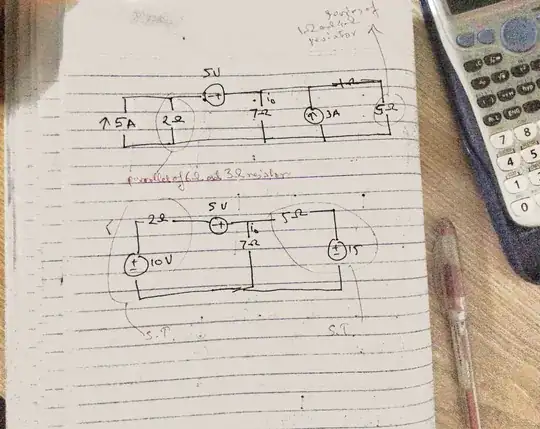 series of
1Ω and 4Ω
resistor
5V
- +
↑ 5A
2Ω
i₀
7Ω
↑
3A
5Ω
parallel of 6Ω and 3Ω resistor
2Ω
5V
- +
i₀
7Ω
5Ω
+
-
10V
+
-
15
S.T.
S.T.
7
8
4
5
1
2
0